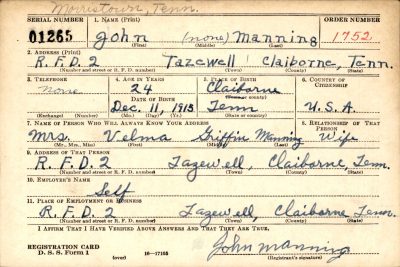 Morristown, Tenn.
SERIAL NUMBER 1. NAME (Print) ORDER NUMBER
01265 John (none) Manning 1752
(First) (Middle) (Last)
2. ADDRESS (Print)
R.F.D. 2 Tazewell Claiborne, Tenn.
(Number and street or R. F. D. number) (Town) (County) (State)
3. TELEPHONE 4. AGE IN YEARS 5. PLACE OF BIRTH 6. COUNTRY OF CITIZENSHIP
none 24 Claiborne
DATE OF BIRTH (Town or county)
Dec. 11, 1915 Tenn U.S.A.
(Exchange) (Number) (Mo.) (Day) (Yr.) (State or country)
7. NAME OF PERSON WHO WILL ALWAYS KNOW YOUR ADDRESS 8. RELATIONSHIP OF THAT PERSON
Mrs. Velma Griffin Manning Wife
(Mr., Mrs., Miss) (First) (Middle) (Last)
9. ADDRESS OF THAT PERSON
R.F.D. 2 Tazewell, Claiborne, Tenn.
(Number and street or R. F. D. number) (Town) (County) (State)
10. EMPLOYER'S NAME
Self
11. PLACE OF EMPLOYMENT OR BUSINESS
R.F.D. 2 Tazewell, Claiborne, Tenn.
(Number and street or R. F. D. number) (Town) (County) (State)
I AFFIRM THAT I HAVE VERIFIED ABOVE ANSWERS AND THAT THEY ARE TRUE.
John Manning
REGISTRATION CARD
D. S. S. Form 1 (over) 16—17105 (Registrant's signature)